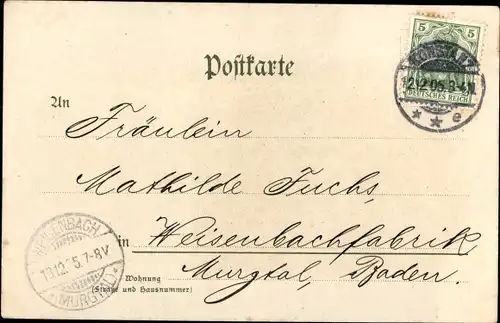 5
DEUTSCHES REICH
Postkarte
KONSTANZ
2.12.05.3-4N.
* * e
An
Fräulein
Mathilde Fuchs,
in Weisenbachfabrik,
Murgtal, Baden.
WEISENBACH
13.12.05.7-8V
* (MURGTAL) *
Wohnung
(Straße und Hausnummer)